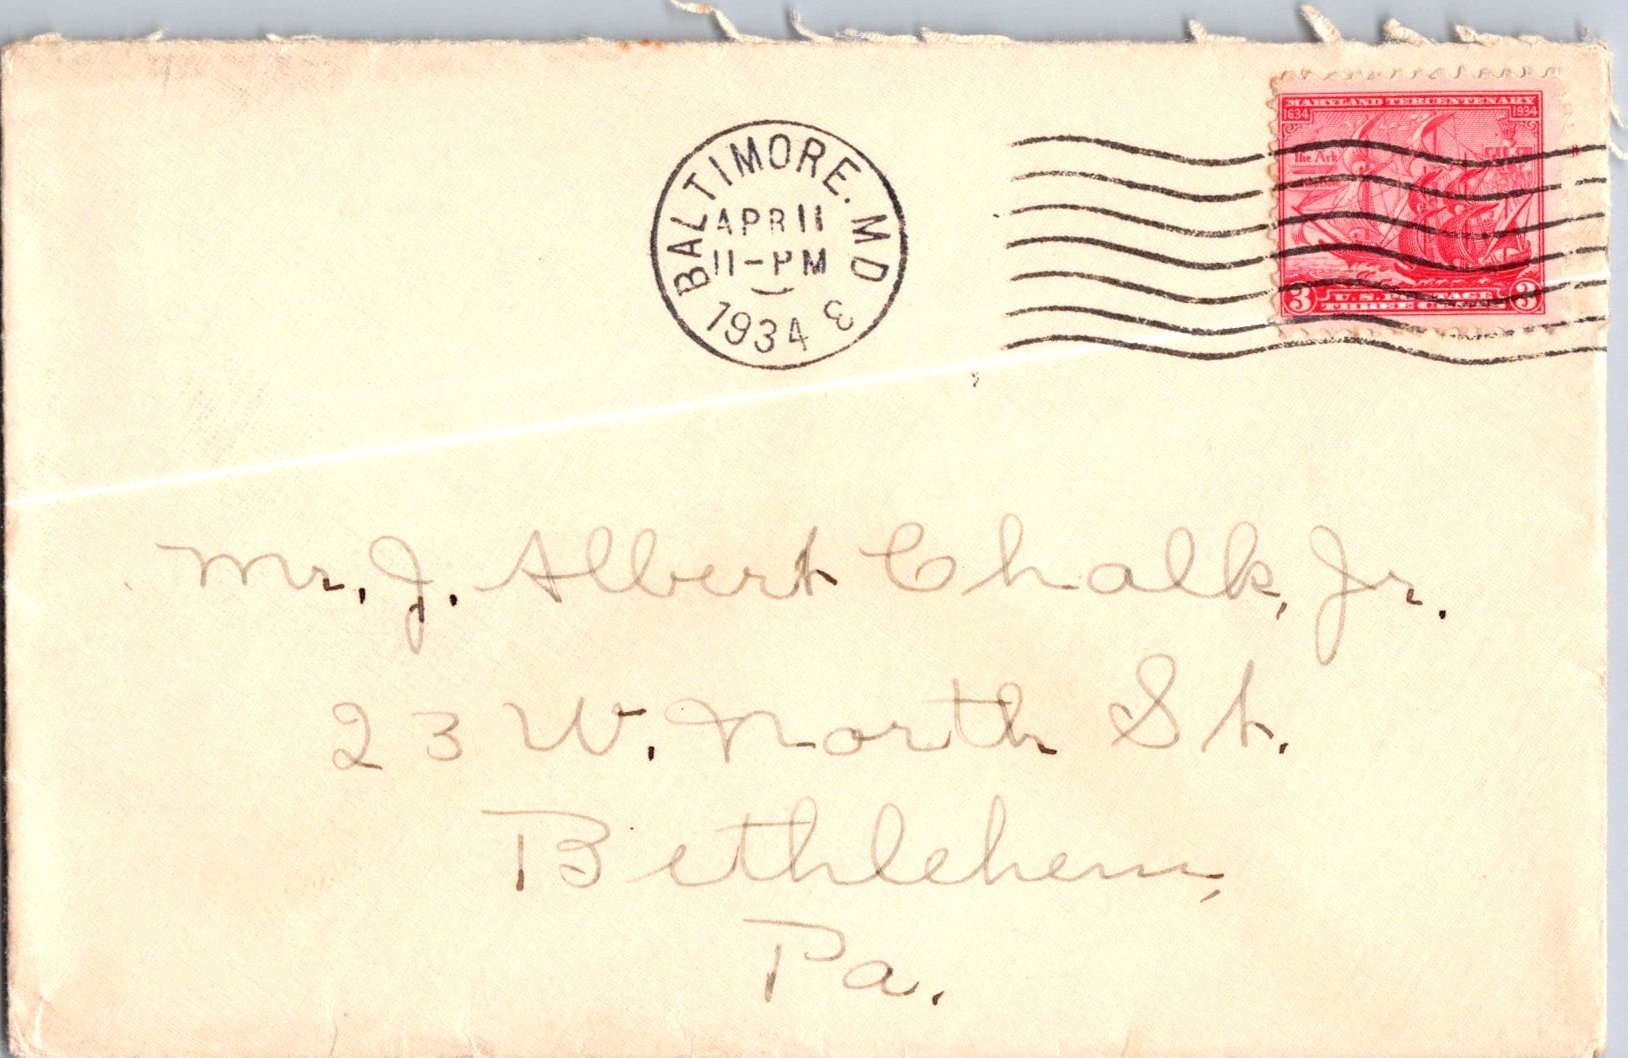 MARYLAND TERCENTENARY
1634 1934
The Ark
3 U.S. POSTAGE 3
THREE CENTS
BALTIMORE. MD
APR 11
11-PM
1934
3
Mr. J. Albert Chalk, Jr.
23 W. North St.
Bethlehem,
Pa.